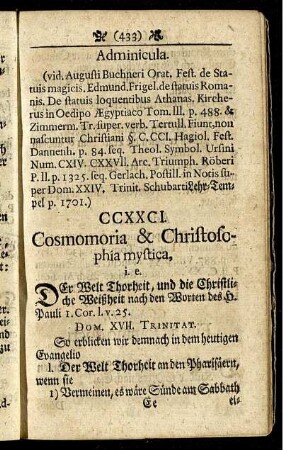 (433)
Adminicula.
(vid. Augusti Buchneri Orat. Fest. de Sta-
tuis magicis. Edmund. Frigel. de statuis Roma-
nis. De statuis loquentibus Athanas. Kirche-
rus in Oedipo Ægyptiaco Tom. III. p. 488. &
Zimmerm. Tr. super. verb. Tertull. Fiunt, non
nascuntur Christiani §. C. CCI. Hagiol. Fest.
Dannenh. p. 84. seq. Theol. Symbol. Ursini
Num. CXIV. CXXVII. Arc. Triumph. Röberi
P. II. p. 1325. seq. Gerlach. Postill. in Notis su-
per Dom. XXIV. Trinit. Schubarti Lehr-Tem-
pel p. 1701.)
CCXXCI.
Cosmomoria & Christoso-
phia mystica,
i. e.
DEr Welt Thorheit, und die Christli-
che Weißheit nach den Worten des H.
Pauli 1. Cor. I. v. 25.
DOM. XVII. TRINITAT.
So erblicken wir demnach in dem heutigen
Evangelio
I. Der Welt Thorheit an den Pharisäern,
wenn sie
1) Vermeinen, es wäre Sünde am Sabbath
Ee el-